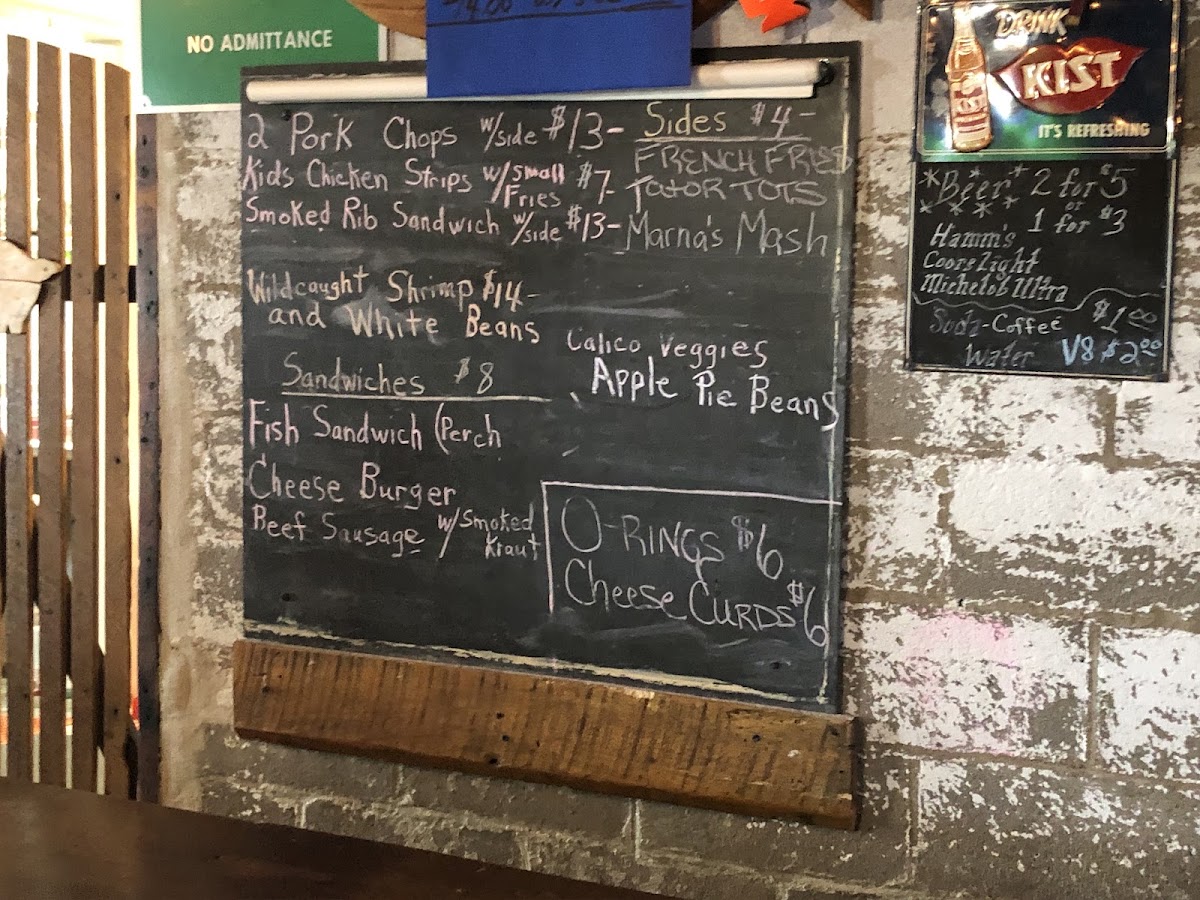 NO ADMITTANCE
2 Pork Chops w/side $13-
Kids Chicken Strips w/small Fries $7-
Smoked Rib Sandwich w/side $13-
Wildcaught Shrimp $14-
and White Beans
Sandwiches $8
Fish Sandwich (Perch
Cheese Burger
Beef Sausage w/Smoked Kraut
Sides $4-
FRENCH FRIES
TATOR TOTS
Marna's Mash
Calico Veggies
Apple Pie Beans
O-RINGS $6
Cheese CURDS $6
DRINK
KIST
KIST
IT'S REFRESHING
*Beer* 2 for $5
or
1 for $3
Hamm's
Coors Light
Michelob Ultra
Soda-Coffee $1.00
Water V8 $2.00